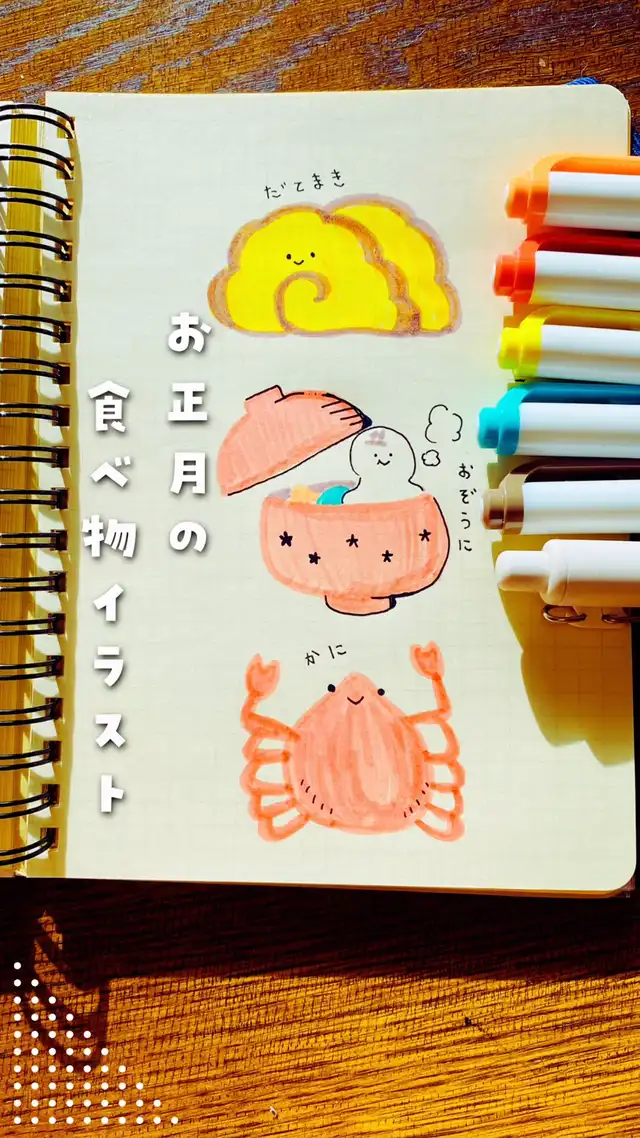 お正月の
食べ物イラスト
だてまき
おぞうに
かに